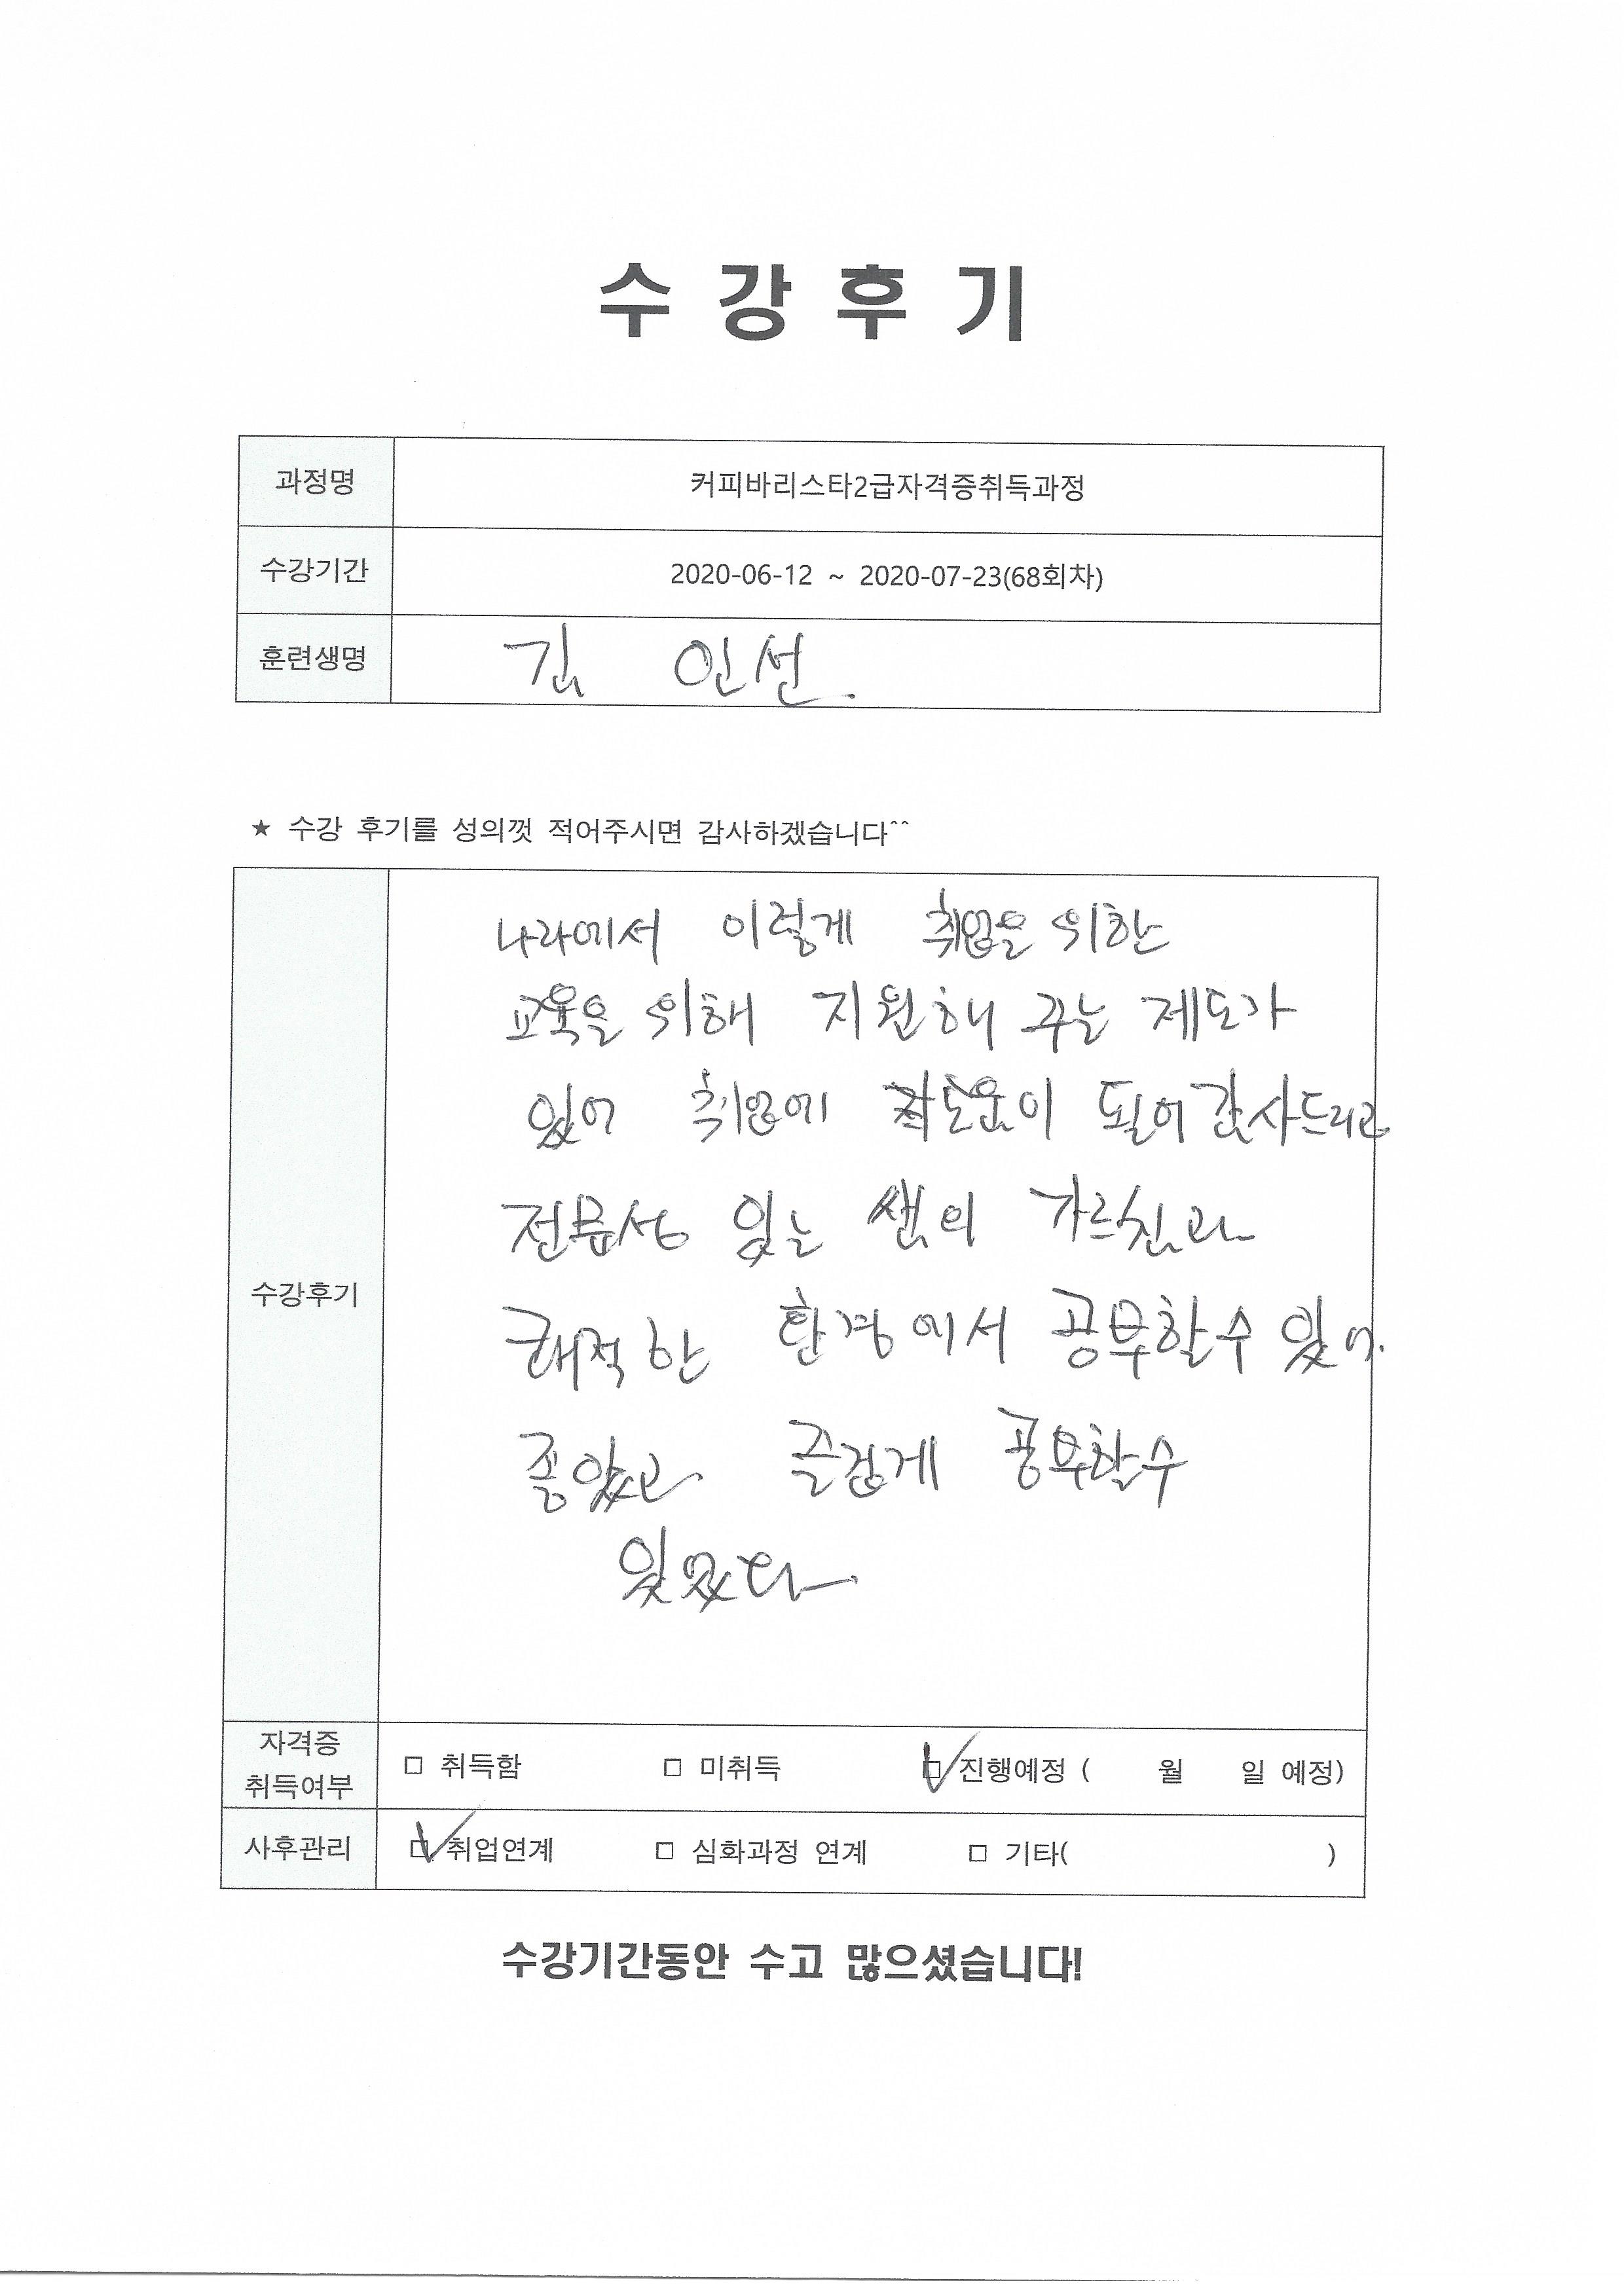 수 강 후 기
과정명 커피바리스타2급자격증취득과정
수강기간 2020-06-12 ~ 2020-07-23(68회차)
훈련생명 김 인선
★ 수강 후기를 성의껏 적어주시면 감사하겠습니다^^
수강후기
나라에서 이렇게 취업을 위한
교육을 위해 지원해 주는 제도가
있어 취업에 도움이 되어 감사드리고
전문성 있는 쌤의 가르침과
쾌적한 환경에서 공부할수 있어.
좋았고 즐겁게 공부할수
있었다
자격증 취득여부 □ 취득함 □ 미취득 ☑ 진행예정 ( 월 일 예정)
사후관리 ☑ 취업연계 □ 심화과정 연계 □ 기타( )
수강기간동안 수고 많으셨습니다!